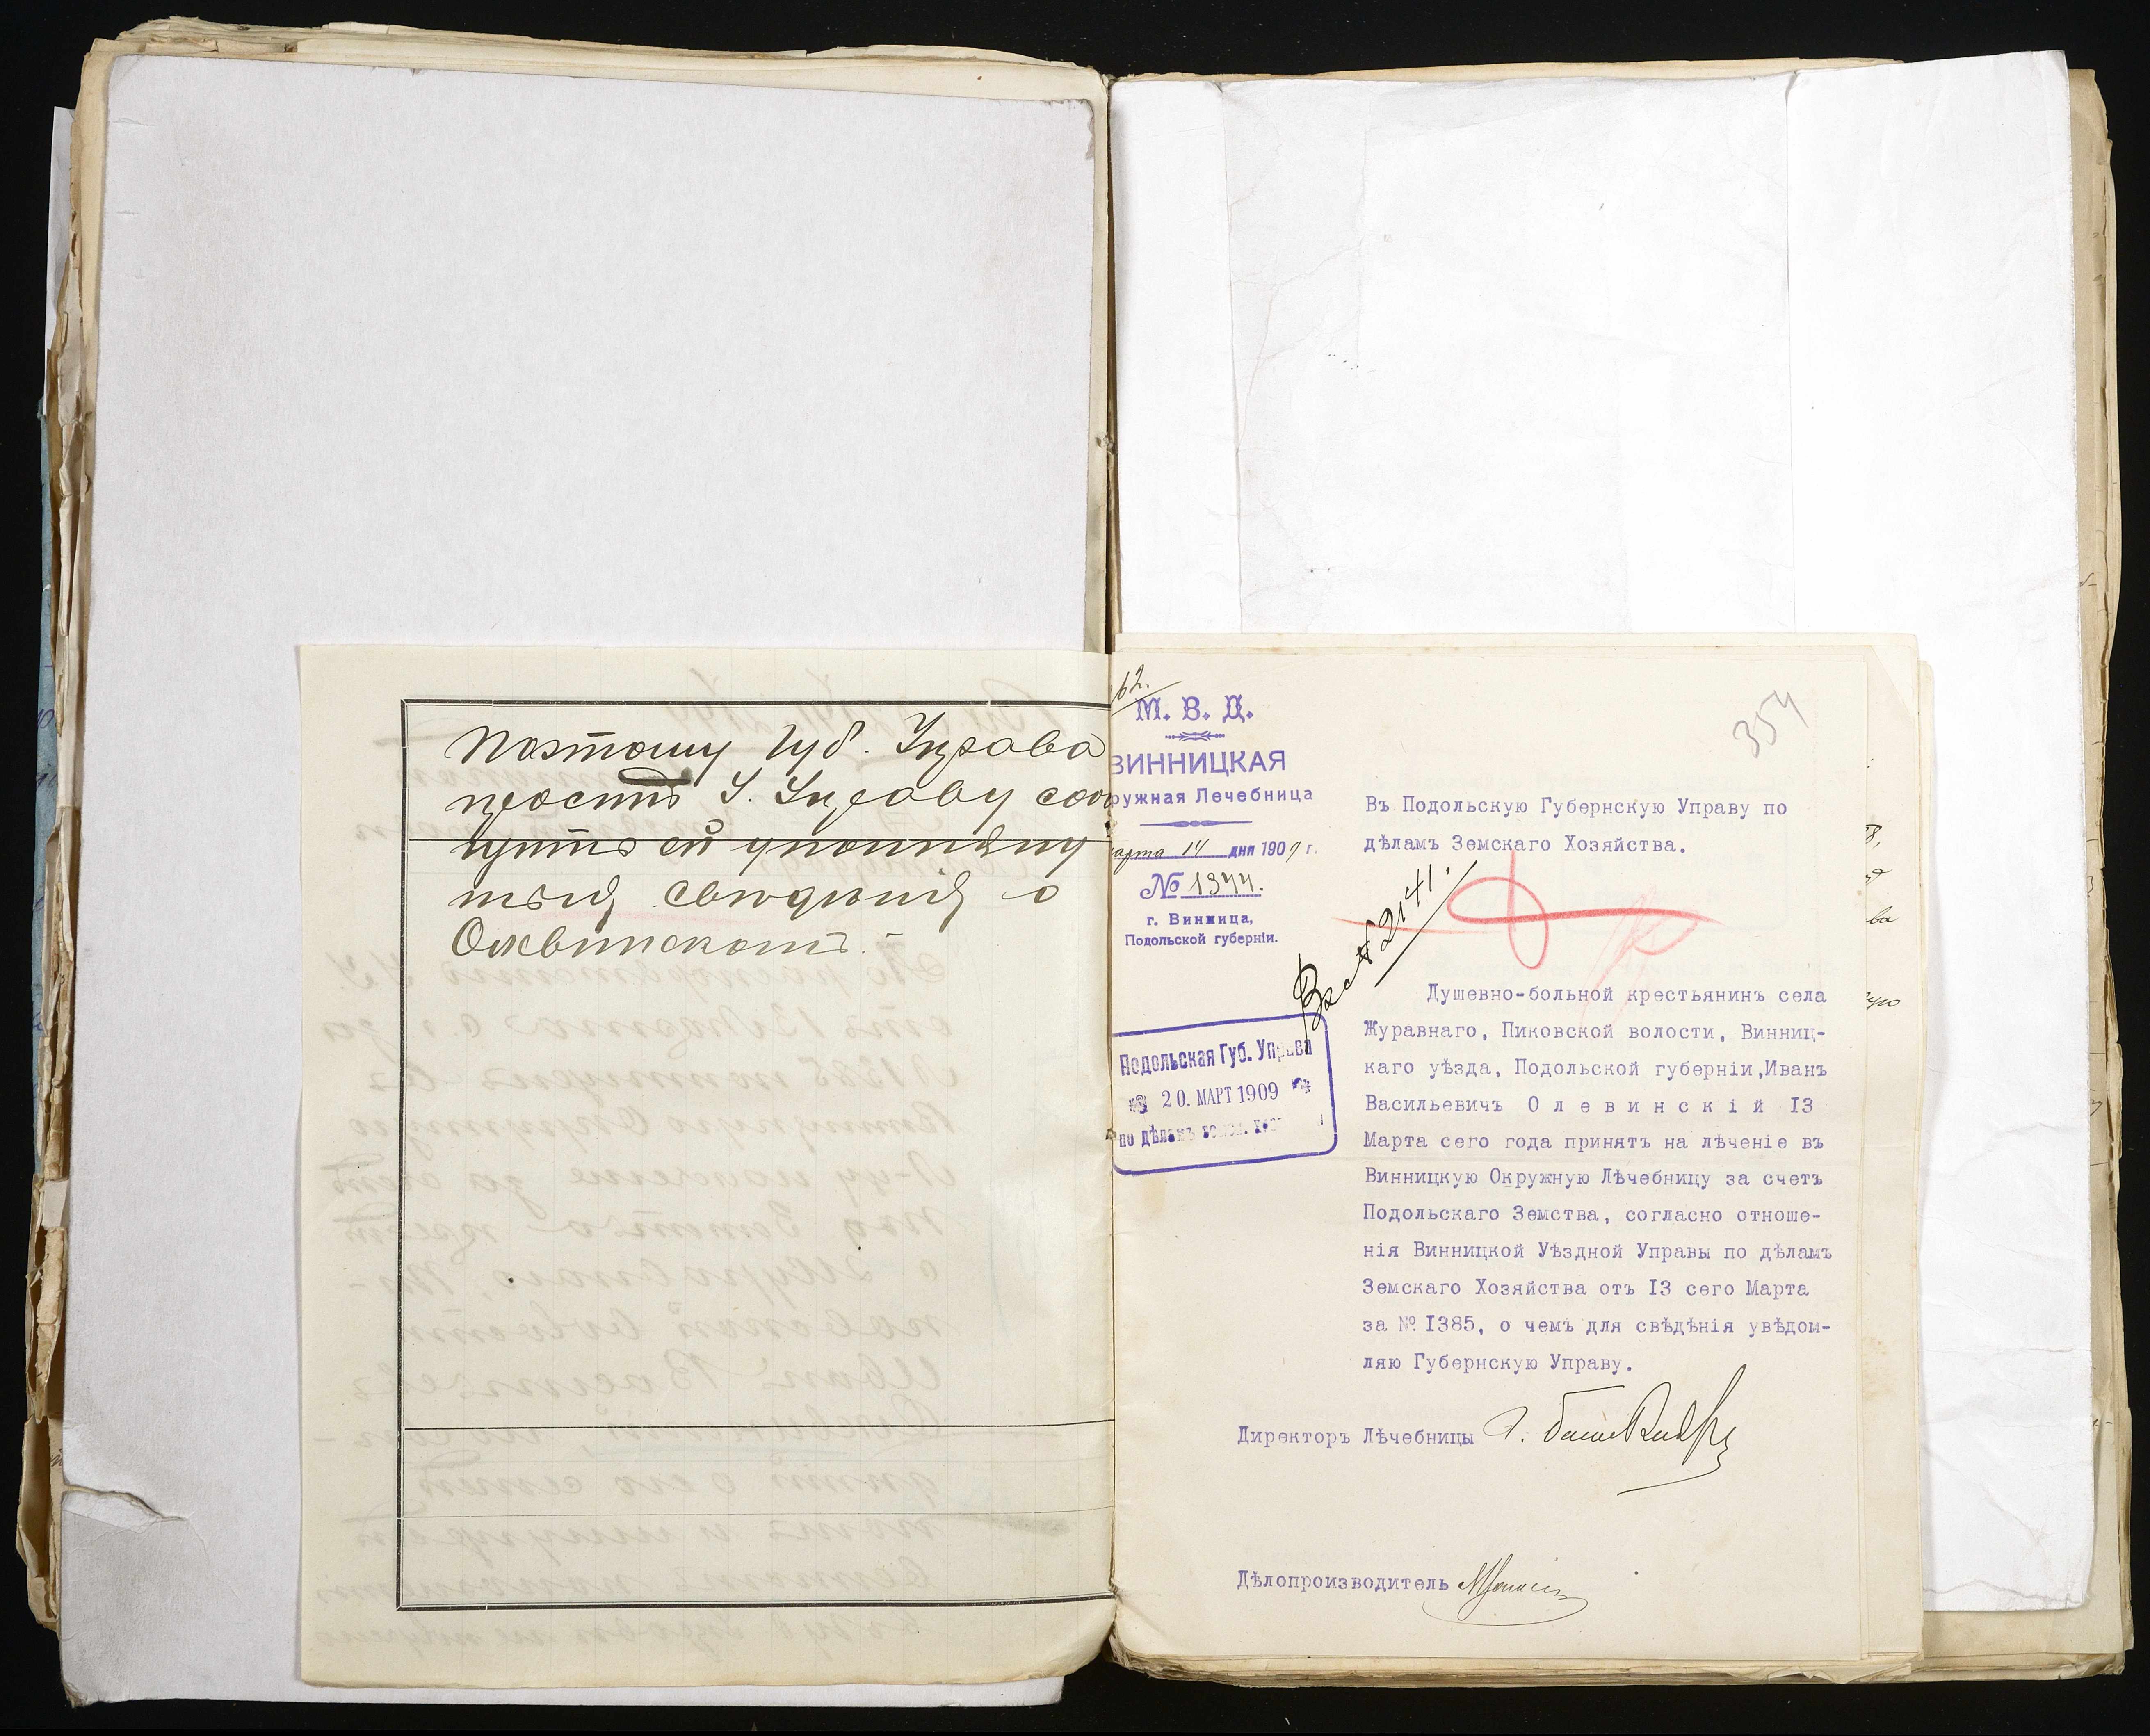 Поэтому Губ. Управа
проситъ У. Управу сооб
щить ей упомяну
тыя свѣдѣнія о
Олевинскомъ.-
62.
М. В. Д.
ВИННИЦКАЯ
ружная Лечебница
арта 14 дня 1909 г.
№ 1344.
г. Винница,
Подольской губерніи.
354
Въ Подольскую Губернскую Управу по
дѣламъ Земскаго Хозяйства.
Вх. № 2141.
Подольская Губ. Управа
20. МАРТ 1909
по дѣламъ земск. хоз
Душевно-больной крестьянинъ села
Журавнаго, Пиковской волости, Винниц-
каго уѣзда, Подольской губерніи,Иванъ
Васильевичъ О л е в и н с к і й 13
Марта сего года принятъ на лѣченіе въ
Винницкую Окружную Лѣчебницу за счетъ
Подольскаго Земства, согласно отноше-
нія Винницкой Уѣздной Управы по дѣламъ
Земскаго Хозяйства отъ 13 сего Марта
за № 1385, о чемъ для свѣдѣнія увѣдом-
ляю Губернскую Управу.
Директоръ Лѣчебницы
Дѣлопроизводитель